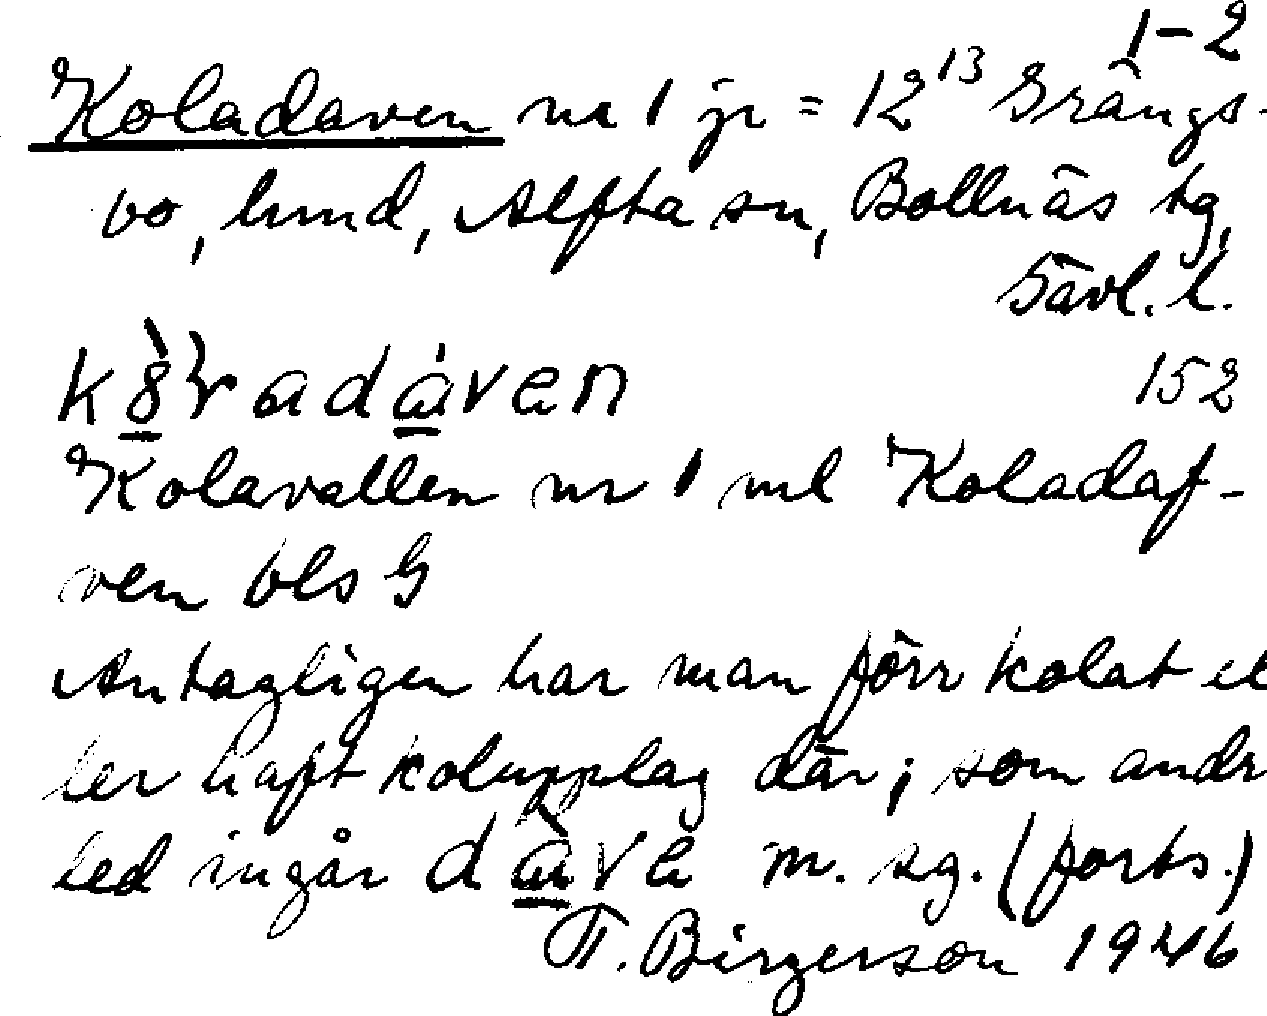 1-2
Koladaven nr 1 jr = 12¹³ Grängs-
bo, hmd, Alfta sn, Bollnäs tg,
Gävl. l.
152
Kolavallen nr 1 ml Koladaf-
ven bls G
Antagligen har man förr kolat el
ler haft kolupplag där; som andr
led ingår dave m. sg. (forts.)
T. Birgerson 1946